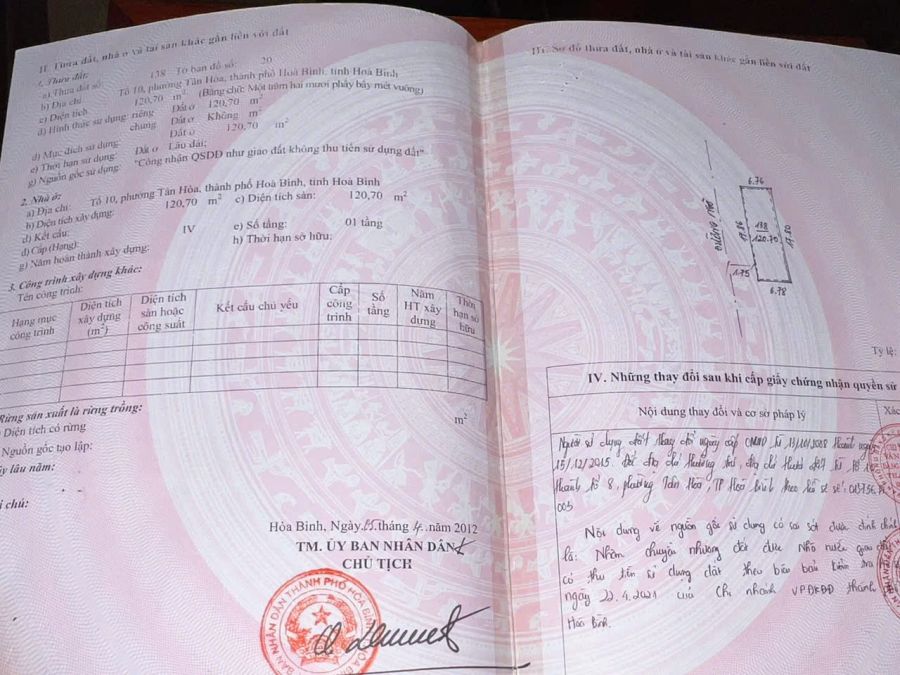 II. Thửa đất, nhà ở và tài sản khác gắn liền với đất
1. Thửa đất:
a) Thửa đất số: 138 Tờ bản đồ số: 20
b) Địa chỉ: Tổ 10, phường Tân Hòa, thành phố Hoà Bình, tỉnh Hoà Bình
c) Diện tích: 120,70 m² (Bằng chữ: Một trăm hai mươi phẩy bảy mét vuông)
d) Hình thức sử dụng: riêng Đất ở 120,70 m²
chung Đất ở Không m²
đ) Mục đích sử dụng: Đất ở 120,70 m²
e) Thời hạn sử dụng: Đất ở Lâu dài;
g) Nguồn gốc sử dụng: "Công nhận QSDĐ như giao đất không thu tiền sử dụng đất".
2. Nhà ở:
a) Địa chỉ: Tổ 10, phường Tân Hòa, thành phố Hoà Bình, tỉnh Hoà Bình
b) Diện tích xây dựng: 120,70 m² c) Diện tích sàn: 120,70 m²
d) Kết cấu:
đ) Cấp (Hạng): IV e) Số tầng: 01 tầng
g) Năm hoàn thành xây dựng: h) Thời hạn sở hữu:
3. Công trình xây dựng khác:
Tên công trình:
Hạng mục công trình Diện tích xây dựng (m²) Diện tích sàn hoặc công suất Kết cấu chủ yếu Cấp công trình Số tầng Năm HT xây dựng Thời hạn sở hữu
Rừng sản xuất là rừng trồng:
Diện tích có rừng m²
Nguồn gốc tạo lập:
ây lâu năm:
i chú:
Hòa Bình, Ngày 25 tháng 4 năm 2012
TM. ỦY BAN NHÂN DÂN
CHỦ TỊCH
III. Sơ đồ thửa đất, nhà ở và tài sản khác gắn liền với đất
6.76
ĐƯỜNG
17.86
138
120.70
17.80
1.75
6.78
Tỷ lệ:
IV. Những thay đổi sau khi cấp giấy chứng nhận quyền sử
Nội dung thay đổi và cơ sở pháp lý
Xác
Người sử dụng đất thay đổi ngày cấp CMND từ 13/10/2008 thành ngày
15/12/2015. Đổi địa chỉ thường trú, địa chỉ thửa đất từ tổ 10
thành tổ 8, phường Tân Hòa, TP Hoà Bình theo hồ sơ số:
005
Nội dung về nguồn gốc sử dụng có sai sót được đính chính
là: Nhận chuyển nhượng đất được Nhà nước giao đất
có thu tiền sử dụng đất theo biên bản kiểm tra
ngày 22.4.2021 của Chi nhánh VPĐKĐĐ thành
Hoà Bình.